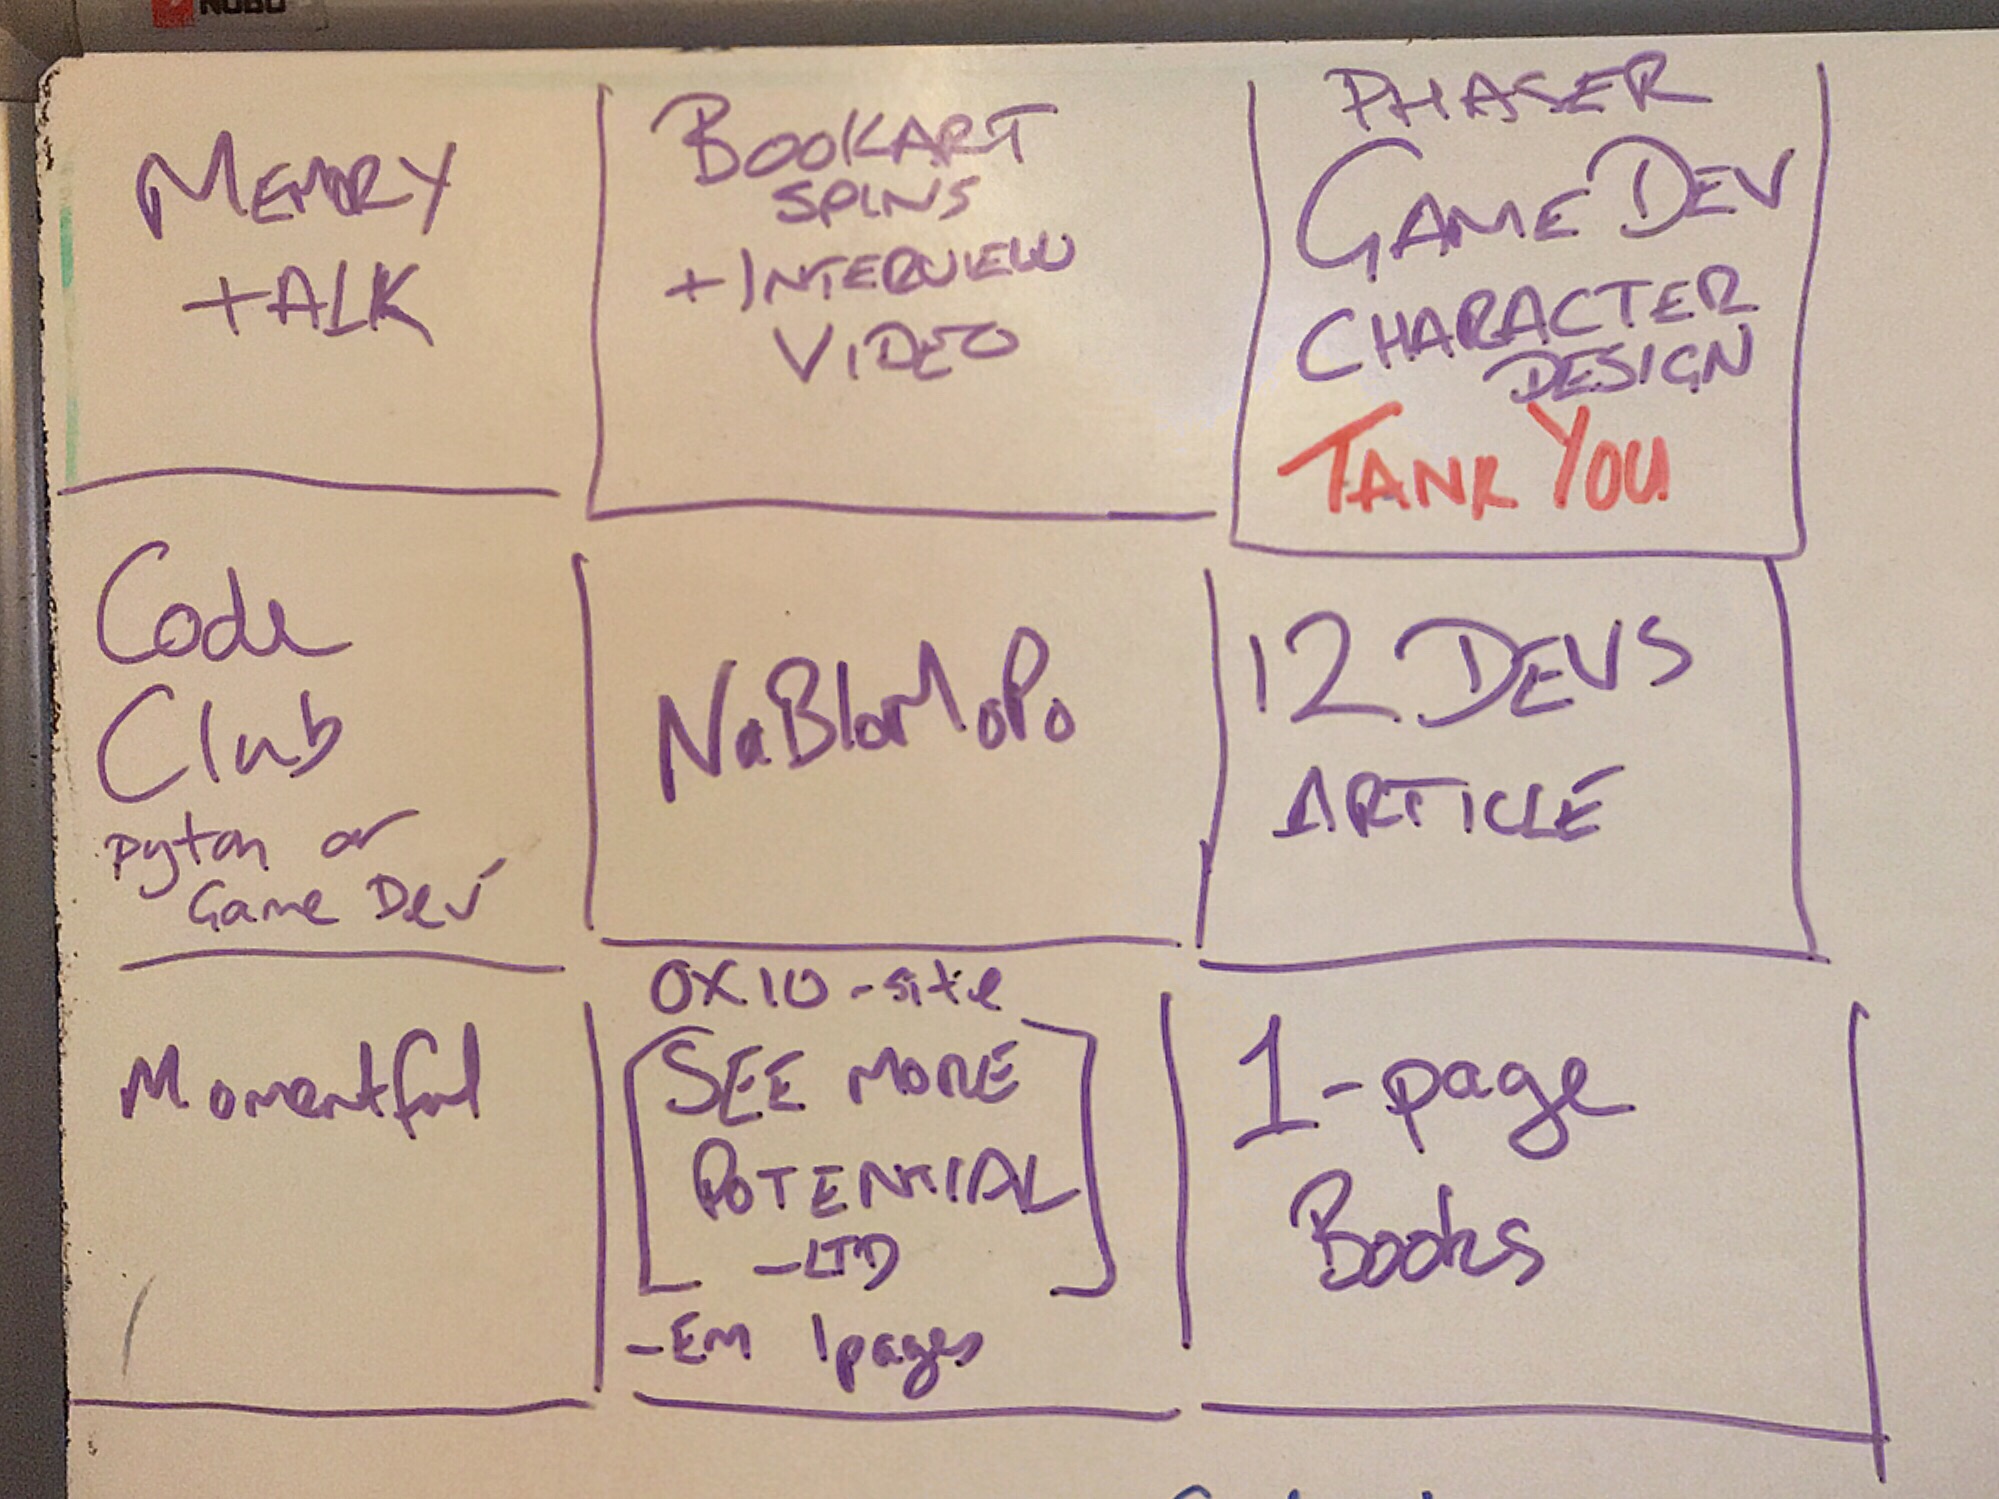 NOBO
MEMORY
+ALK
BOOKART
SPINS
+INTERVIEW
VIDEO
PHASER
GAME DEV
CHARACTER
DESIGN
TANK YOU
Code
Club
pyton or
Game Dev
NaBloMoPo
12 DEVS
ARTICLE
Momentful
0X10-site
SEE MORE
POTENTIAL
-LTD
-Em 1pages
1-page
Books